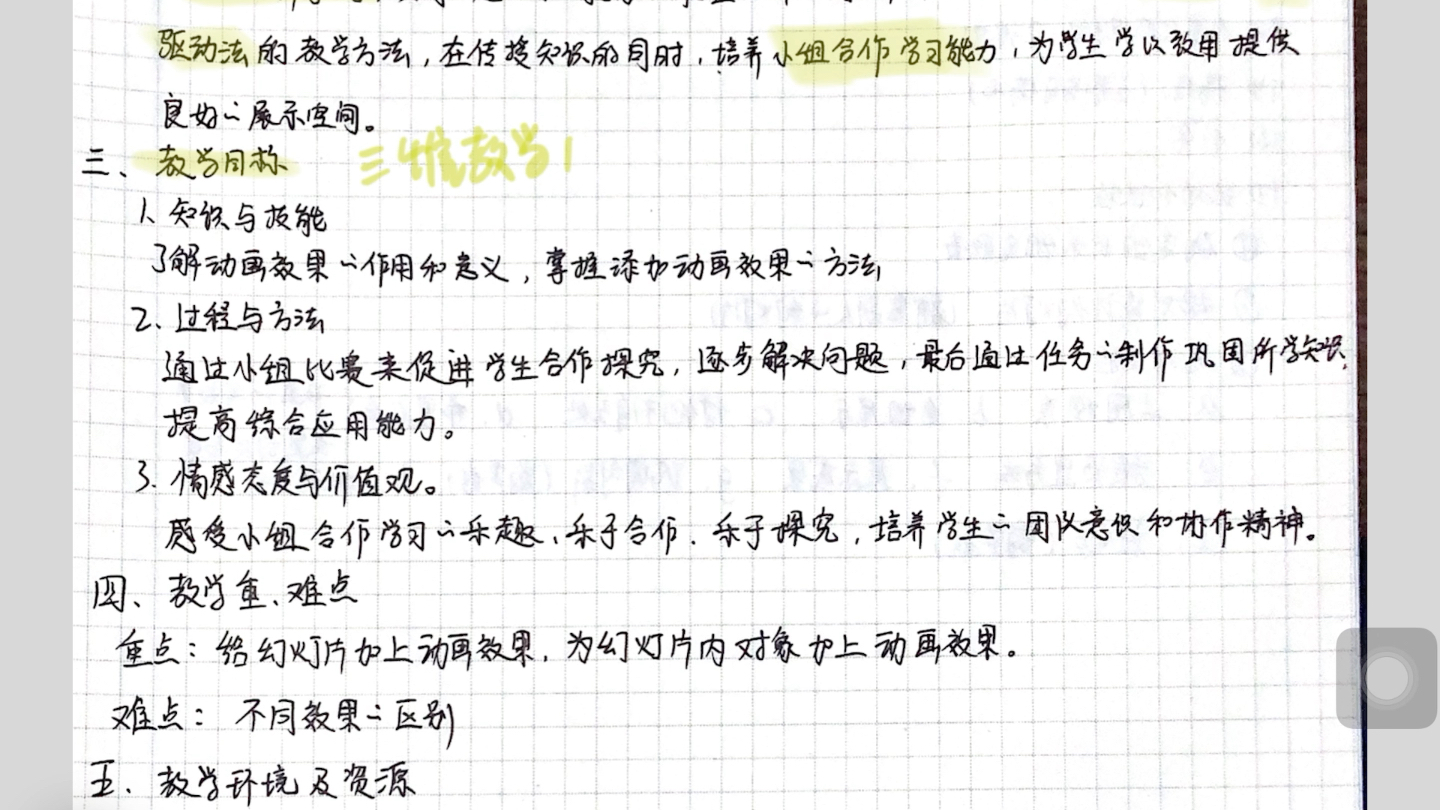 驱动法的教学方法，在传授知识的同时，培养小组合作学习能力，为学生学以致用提供
良好的展示空间。
三、教学目标 三维教学！
1、知识与技能
了解动画效果的作用和意义，掌握添加动画效果的方法
2、过程与方法
通过小组比赛来促进学生合作探究，逐步解决问题，最后通过任务的制作巩固所学知识，
提高综合应用能力。
3、情感态度与价值观。
感受小组合作学习的乐趣、乐于合作、乐于探究，培养学生的团队意识和协作精神。
四、教学重、难点
重点：给幻灯片加上动画效果，为幻灯片内对象加上动画效果。
难点：不同效果的区别
五、教学环境及资源